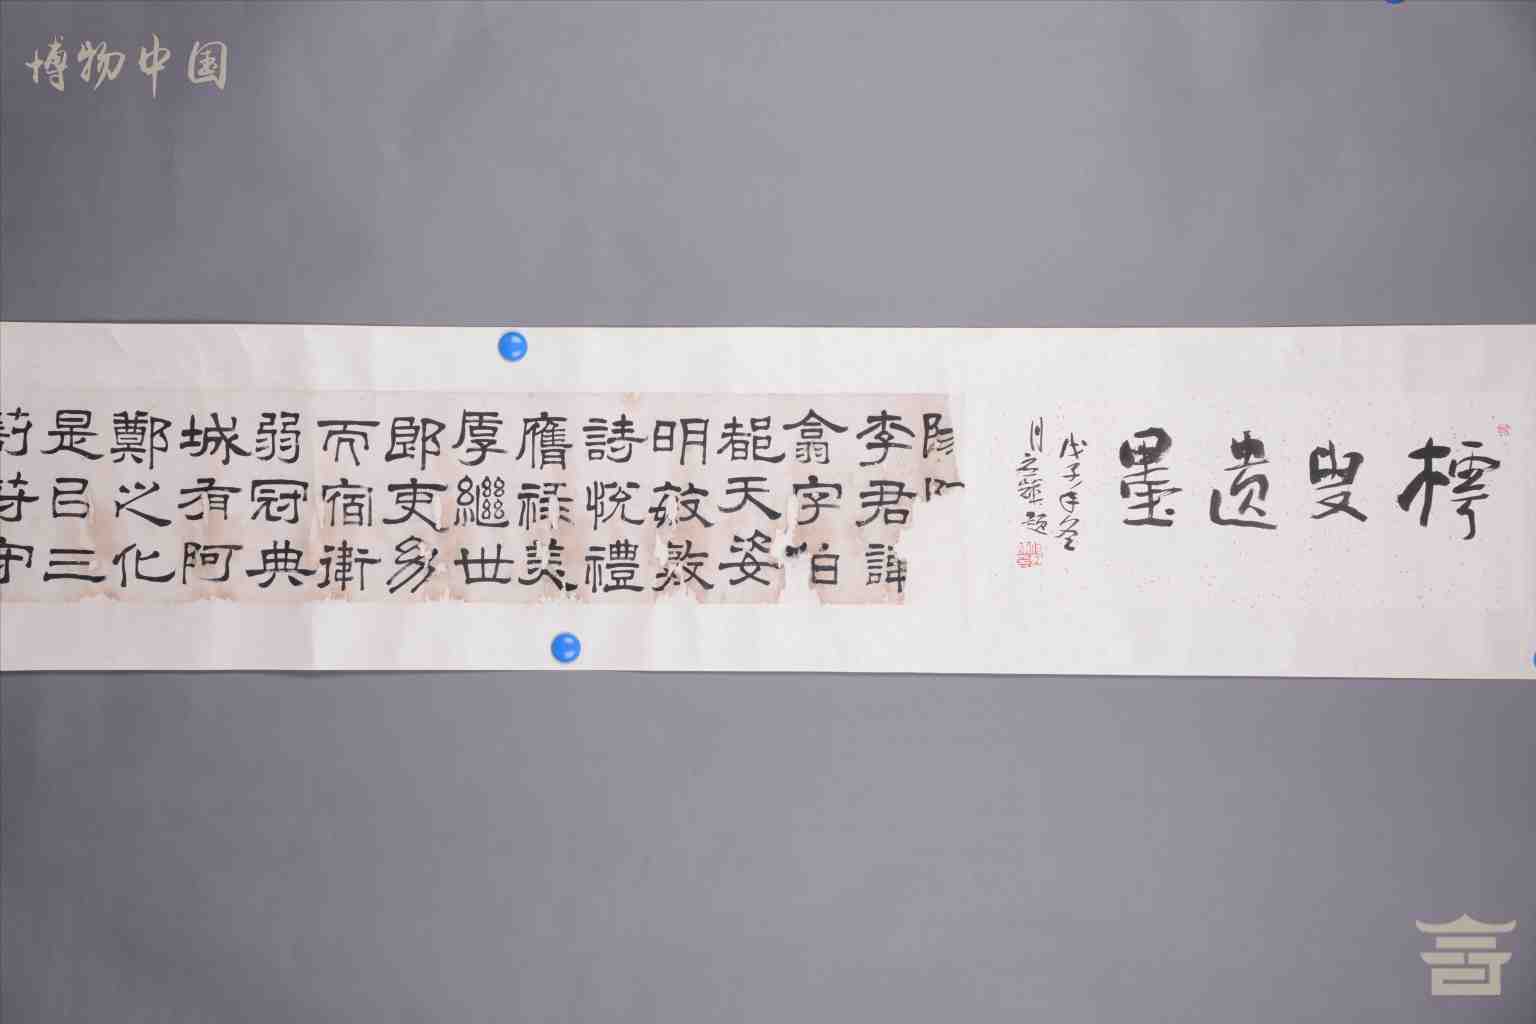 博物中国
樗叟遗墨
戊子年冬
月
題
陽
李君諱
翕字伯
都天姿
明敏敦
詩悅禮
膺祿美
厚繼世
郎吏幼
而宿衛
弱冠典
城有阿
鄭之化
是㠯三
苻守